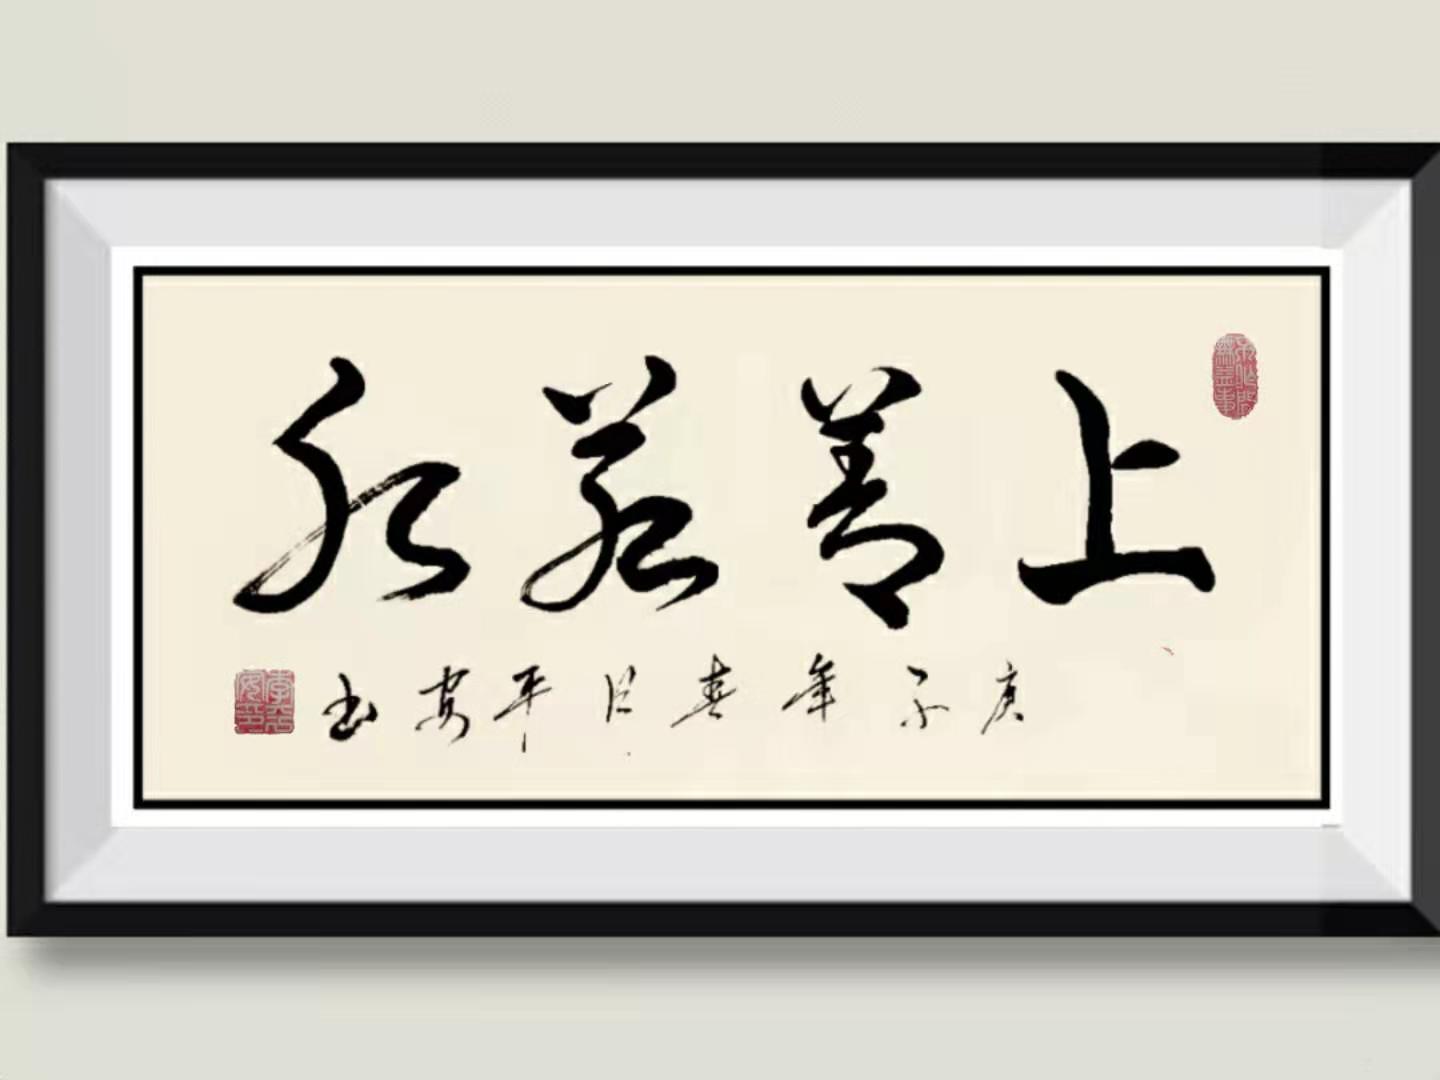 上善若水
庚子年春月平安书